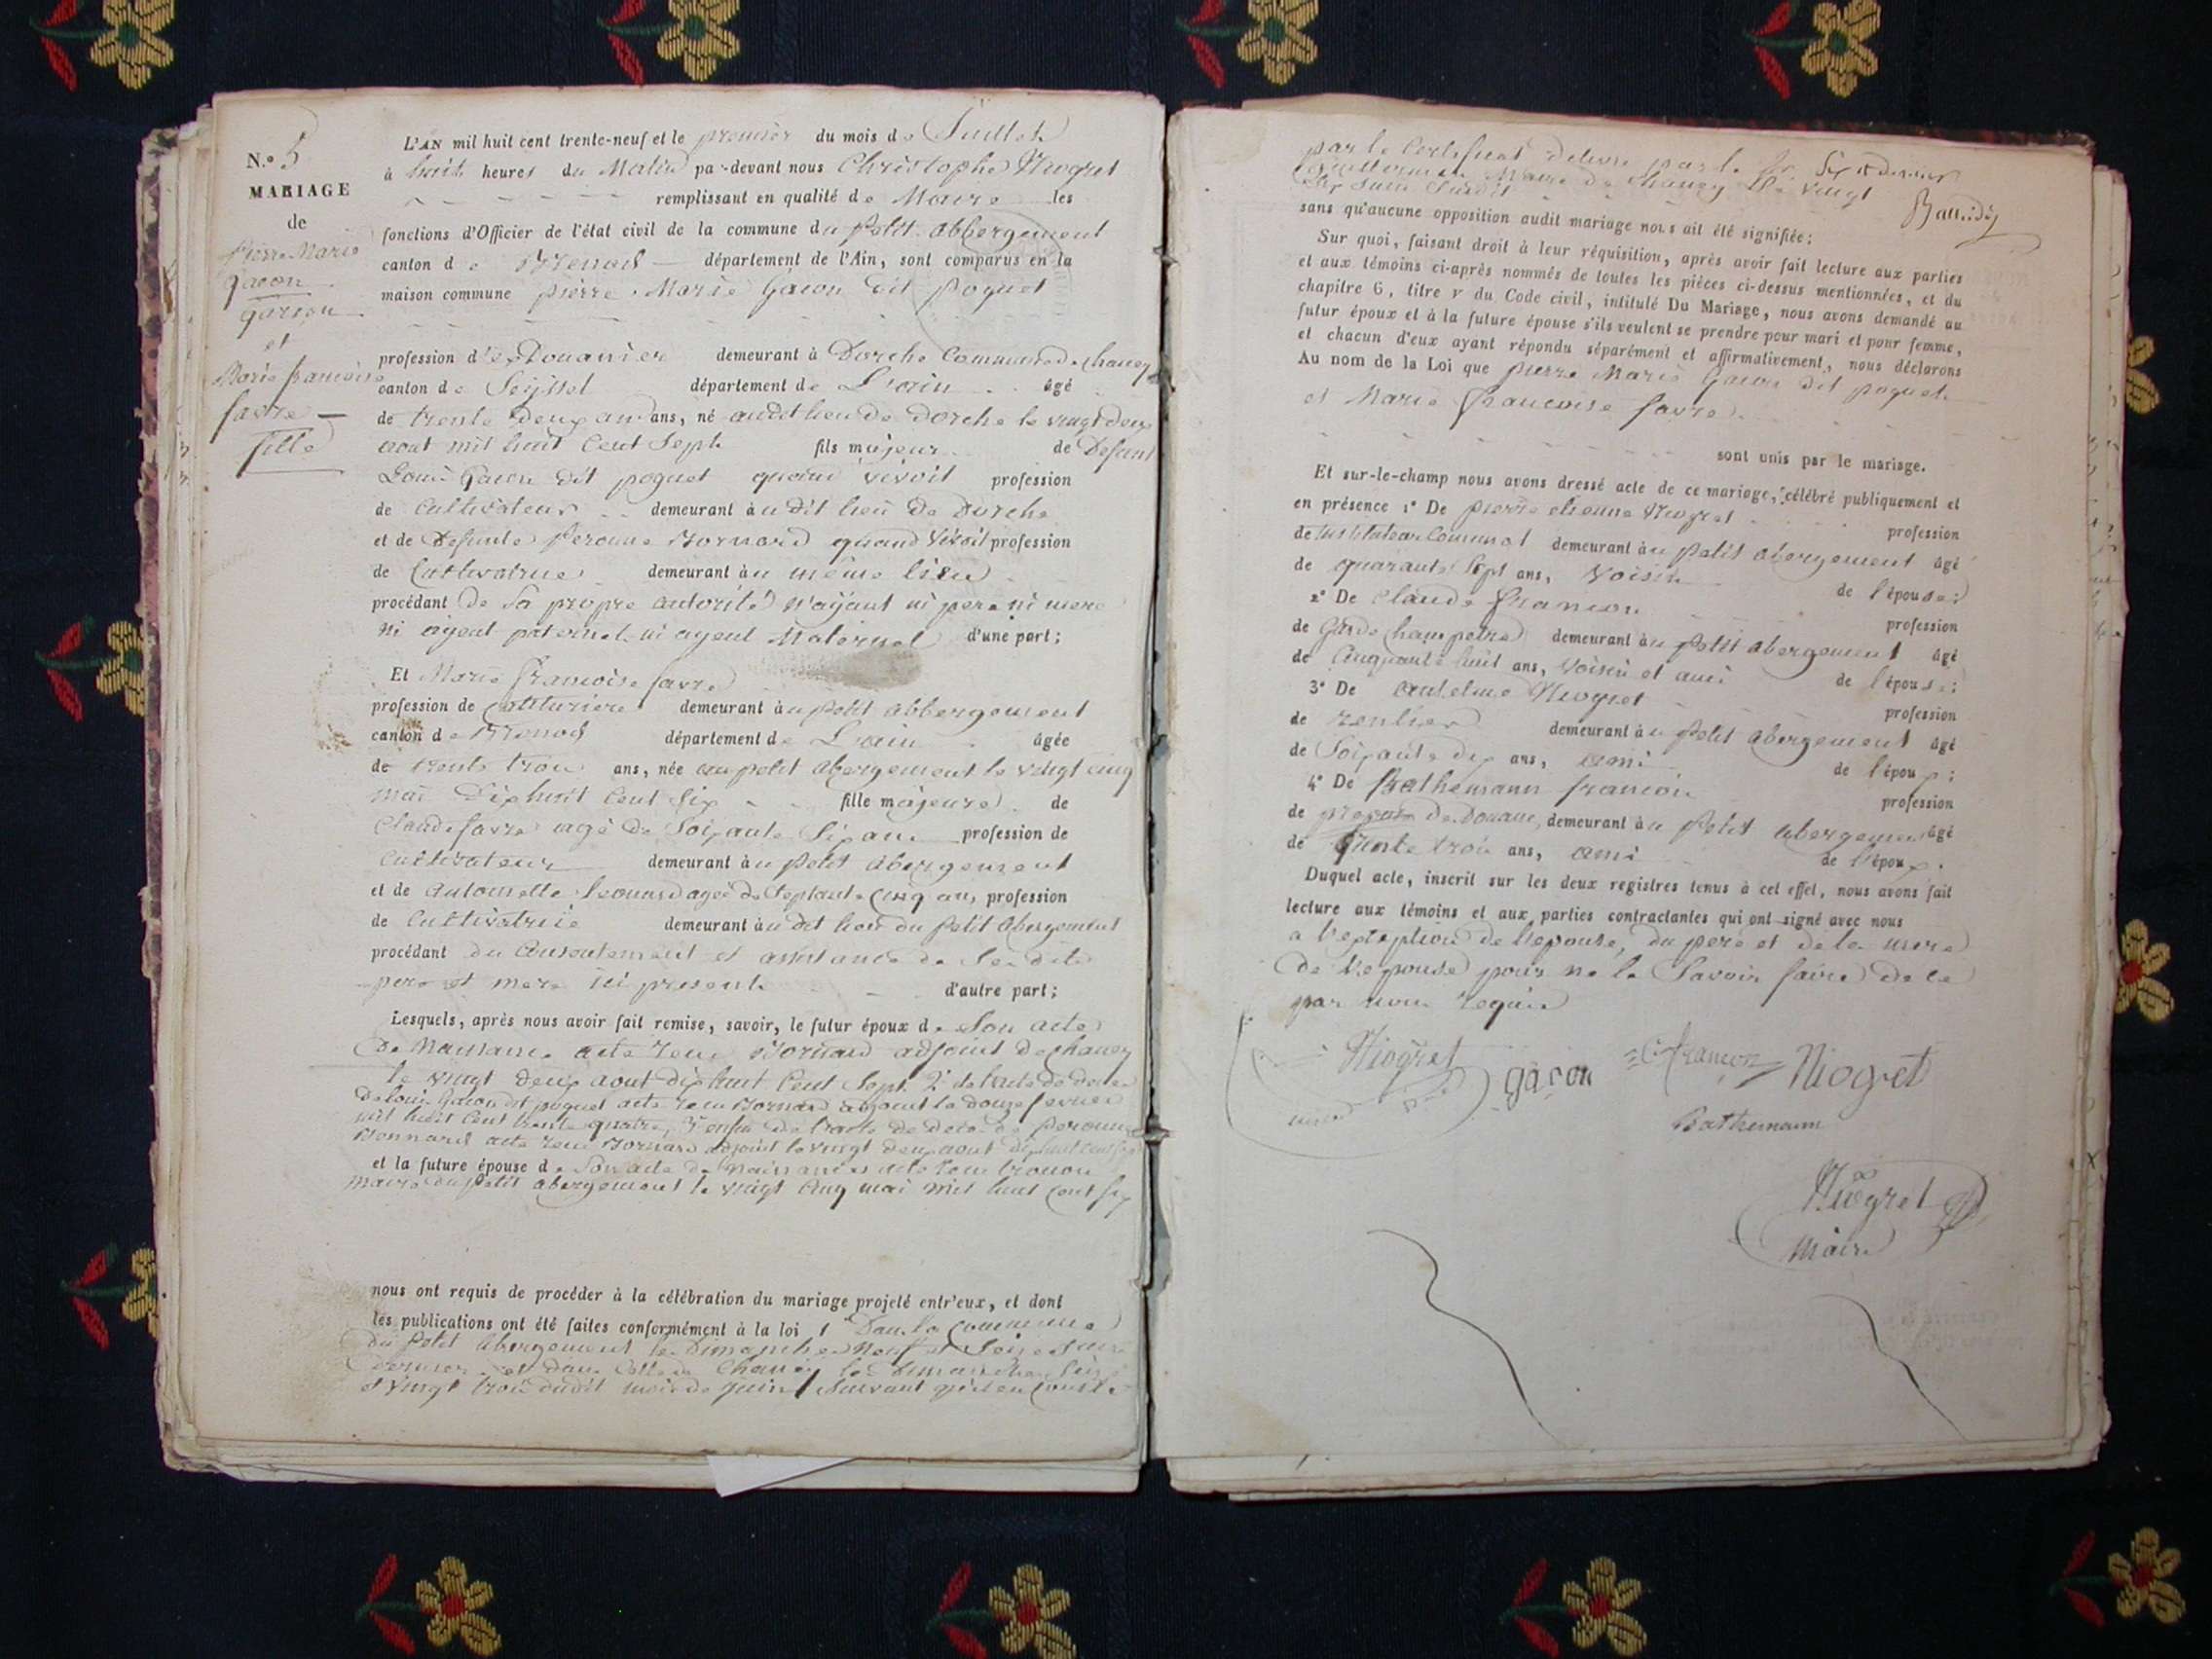 N.o 5
MARIAGE
de
Pierre Marie
gacon
garçon
et
Marie françoise
favre
fille
L'AN mil huit cent trente-neuf et le premier du mois de Juillet
à huit heures du Matin par-devant nous Christophe Niogret
remplissant en qualité de Maire les
fonctions d'Officier de l'état civil de la commune du petit abbergement
canton de Brenod département de l'Ain, sont comparus en la
maison commune pierre Marie Gacon dit poquet
profession de Douanier demeurant à Dorche Commune de chanay
canton de Seyssel département de L'ain âgé
de trente deux ans ans, né audit lieu de Dorche le vingt deux
aout mil huit Cent Sept fils majeur de Defunt
Louis Gacon dit poquet quand vivoit profession
de Cultivateur demeurant au dit lieu de Dorche
et de Defunte Peronne Bornard quand vivoit profession
de Cultivatrice demeurant au même lieu
procédant de Sa propre autorité n'ayant ni pere ni mere
ni ayeul paternel ni ayeul Maternel d'une part;
Et Marie françoise favre
profession de Couturiere demeurant au petit abbergement
canton de Brenod département de L'ain âgée
de trente trois ans, née au petit abergement le vingt cinq
mai Dixhuit Cent Six fille majeure de
Claude favre agé de Soixante Six ans profession de
Cultivateur demeurant au petit abergement
et de antoinette agée de Septante Cinq ans profession
de Cultivatrice demeurant au dit lieu du petit abergement
procédant du Consentement et assistance de Ses dits
pere et mere ici presents d'autre part;
Lesquels, après nous avoir fait remise, savoir, le futur époux de Son acte
de Naissance acte reçu Bornard adjoint de chanay
le vingt deux aout dixhuit Cent Sept. 2° de l'acte de deces
de louis Gacon dit poquet acte reçu Bornard adjoint le douze fevrier
mil huit Cent trente quatre, 3° enfin de l'acte de deces de peronne
Bornard acte reçu Bornard adjoint le vingt deux aout dixhuit cent
et la future épouse de Son acte de naissances acte reçu
maire du petit abergement le vingt Cinq mai mil huit Cent six
nous ont requis de procéder à la célébration du mariage projeté entr'eux, et dont
les publications ont été faites conformément à la loi 1° Dans la Commune
du petit abergement les Dimanches Neuf et Seize Juin
dernier et dans Celle de Chanay les dimanches
et vingt trois dudit mois de juin Suivant qu'il en Conste
par le Certificat delivré par le Sr.
Maire de Chanay le vingt
Six Juin Susdit
sans qu'aucune opposition audit mariage nous ait été signifiée;
Sur quoi, faisant droit à leur réquisition, après avoir fait lecture aux parties
et aux témoins ci-après nommés de toutes les pièces ci-dessus mentionnées, et du
chapitre 6, titre v du Code civil, intitulé Du Mariage, nous avons demandé au
futur époux et à la future épouse s'ils veulent se prendre pour mari et pour femme,
et chacun d'eux ayant répondu séparément et affirmativement, nous déclarons
Au nom de la Loi que pierre Marie Gacon dit poquet
et Marie françoise favre
sont unis par le mariage.
Et sur-le-champ nous avons dressé acte de ce mariage, célébré publiquement et
en présence 1° De pierre etienne Niogret profession
de instituteur Communal demeurant au petit abergement âgé
de quarante Sept ans, voisin de l'épouse;
2° De Claude françon profession
de Garde Champetre demeurant au petit abergement âgé
de Cinquante huit ans, voisin et ami de l'épouse;
3° De anthelme Niogret profession
de rentier demeurant au petit abergement âgé
de Soixante dix ans, ami de l'époux;
4° De Bathemann françois profession
de preposé de Douane, demeurant au petit abergement âgé
de trente trois ans, ami de l'époux.
Duquel acte, inscrit sur les deux registres tenus à cet effet, nous avons fait
lecture aux témoins et aux parties contractantes qui ont signé avec nous
a l'exception de l'epouse, du pere et de la mere
de l'epouse pour ne le Savoir faire de ce
par nous requis
Niogret
gacon
C. françon
Niogret
Bathemann
Niogret
Maire